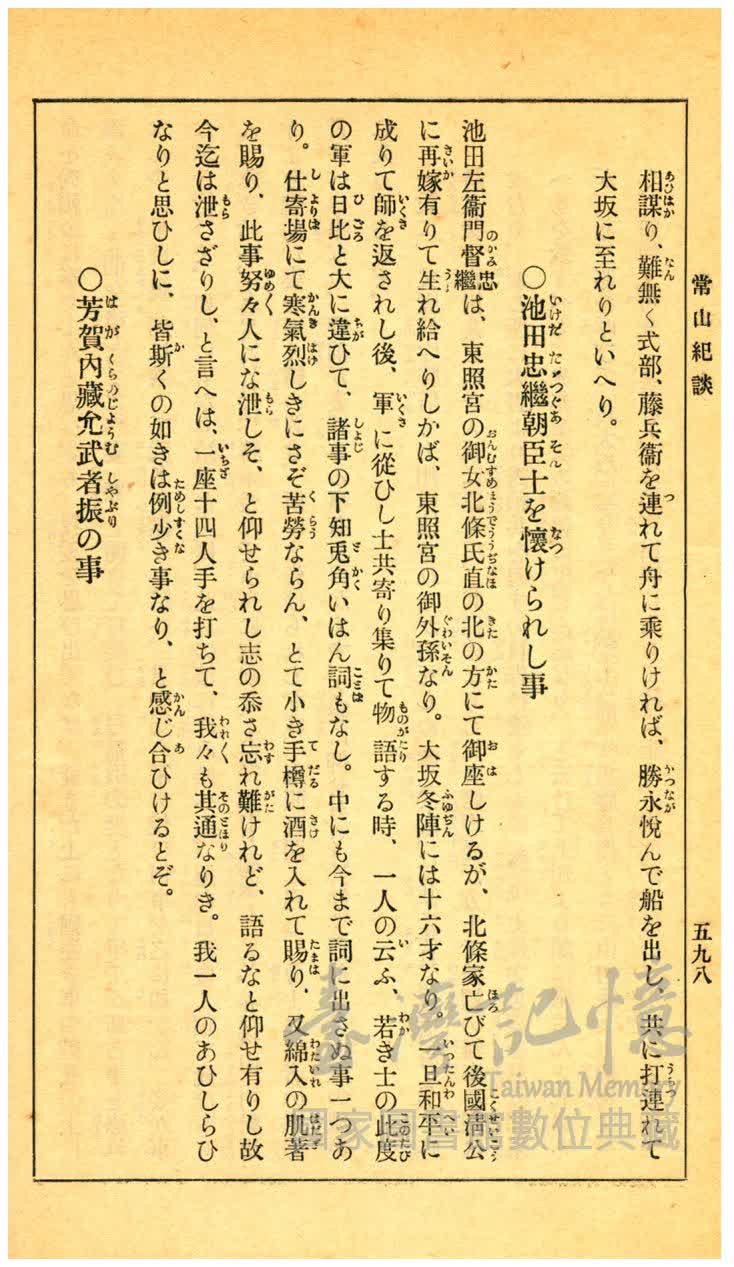 常山紀談
五九八
相謀り、難無く式部、藤兵衞を連れて舟に乘りければ、勝永悅んで船を出し、共に打連れて
大坂に至れりといへり。
〇池田忠繼朝臣士を懷けられし事
池田左衞門督忠繼は、東照宮の御女北條氏直の北の方にて御座しけるが、北條家亡びて後國淸公
に再嫁有りて生れ給へりしかば、東照宮の御外孫なり。大坂冬陣には十六才なり。一旦和平に
成りて師を返されし後、軍に從ひし士共寄り集りて物語する時、一人の云ふ、若き士の此度
の軍は日比と大に違ひて、諸事の下知兎角いはん詞もなし。中にも今まで詞に出さぬ事一つあ
り。仕寄場にて寒氣烈しきにさぞ苦勞ならん、とて小き手樽に酒を入れて賜り、又綿入の肌著
を賜り、此事努々人にな泄しそ、と仰せられし志の忝さ忘れ難けれど、語るなと仰せ有りし故
今迄は泄さざりし、と言へば、一座十四人手を打ちて、我々も其通なりき。我一人のあひしらひ
なりと思ひしに、皆斯くの如きは例少き事なり、と感じ合ひけるとぞ。
〇芳賀內藏允武者振の事
臺灣記憶
Taiwan Memory
國家圖書館數位典藏